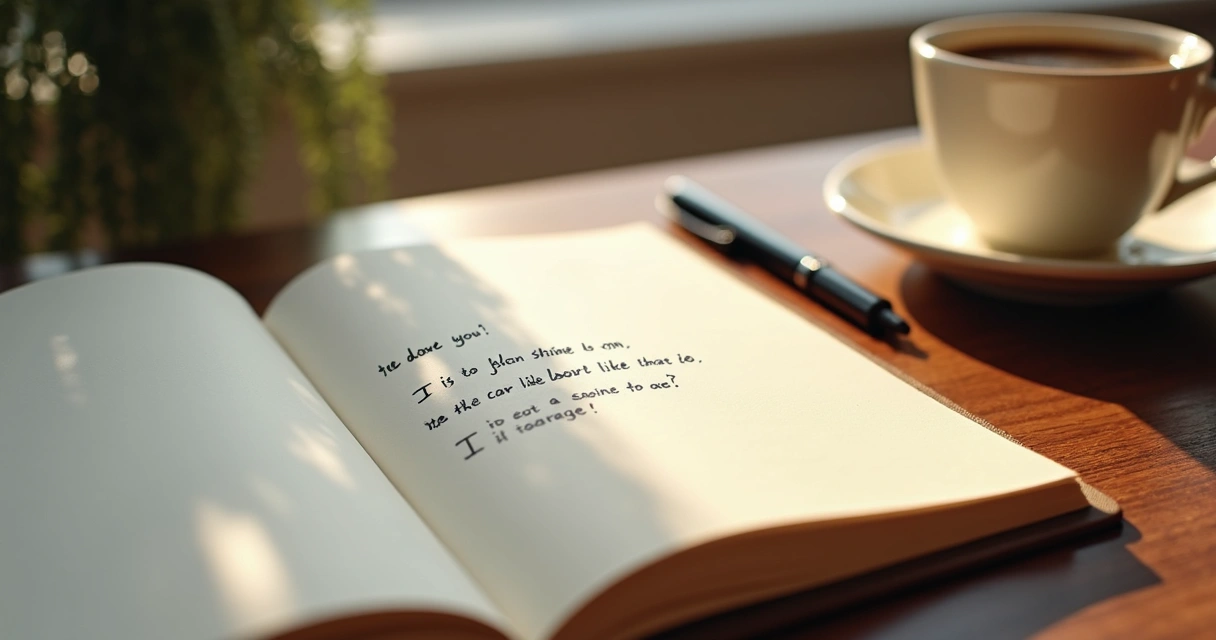 dove you?
I is to plan shine is on.
the car like lourt like that is.
is eot a saoine to oe?
I il toarage!